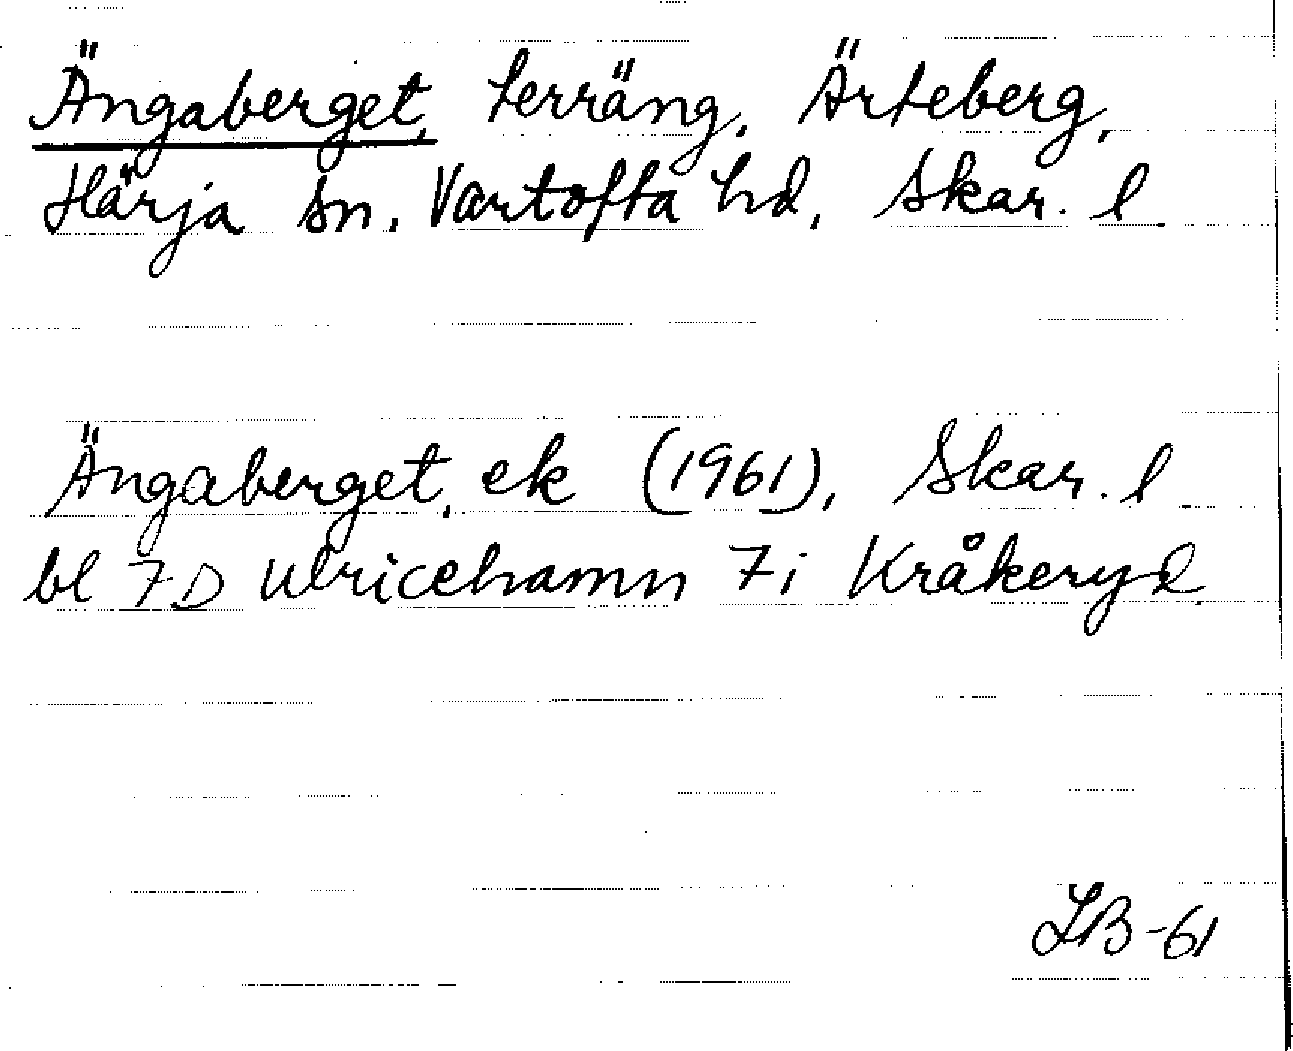 Ängaberget, terräng, Ärteberg,
Härja sn, Vartofta hd, Skar. l
Ängaberget, ek (1961), Skar. l
bl 7D Ulricehamn 7i Kråkeryd
LB-61